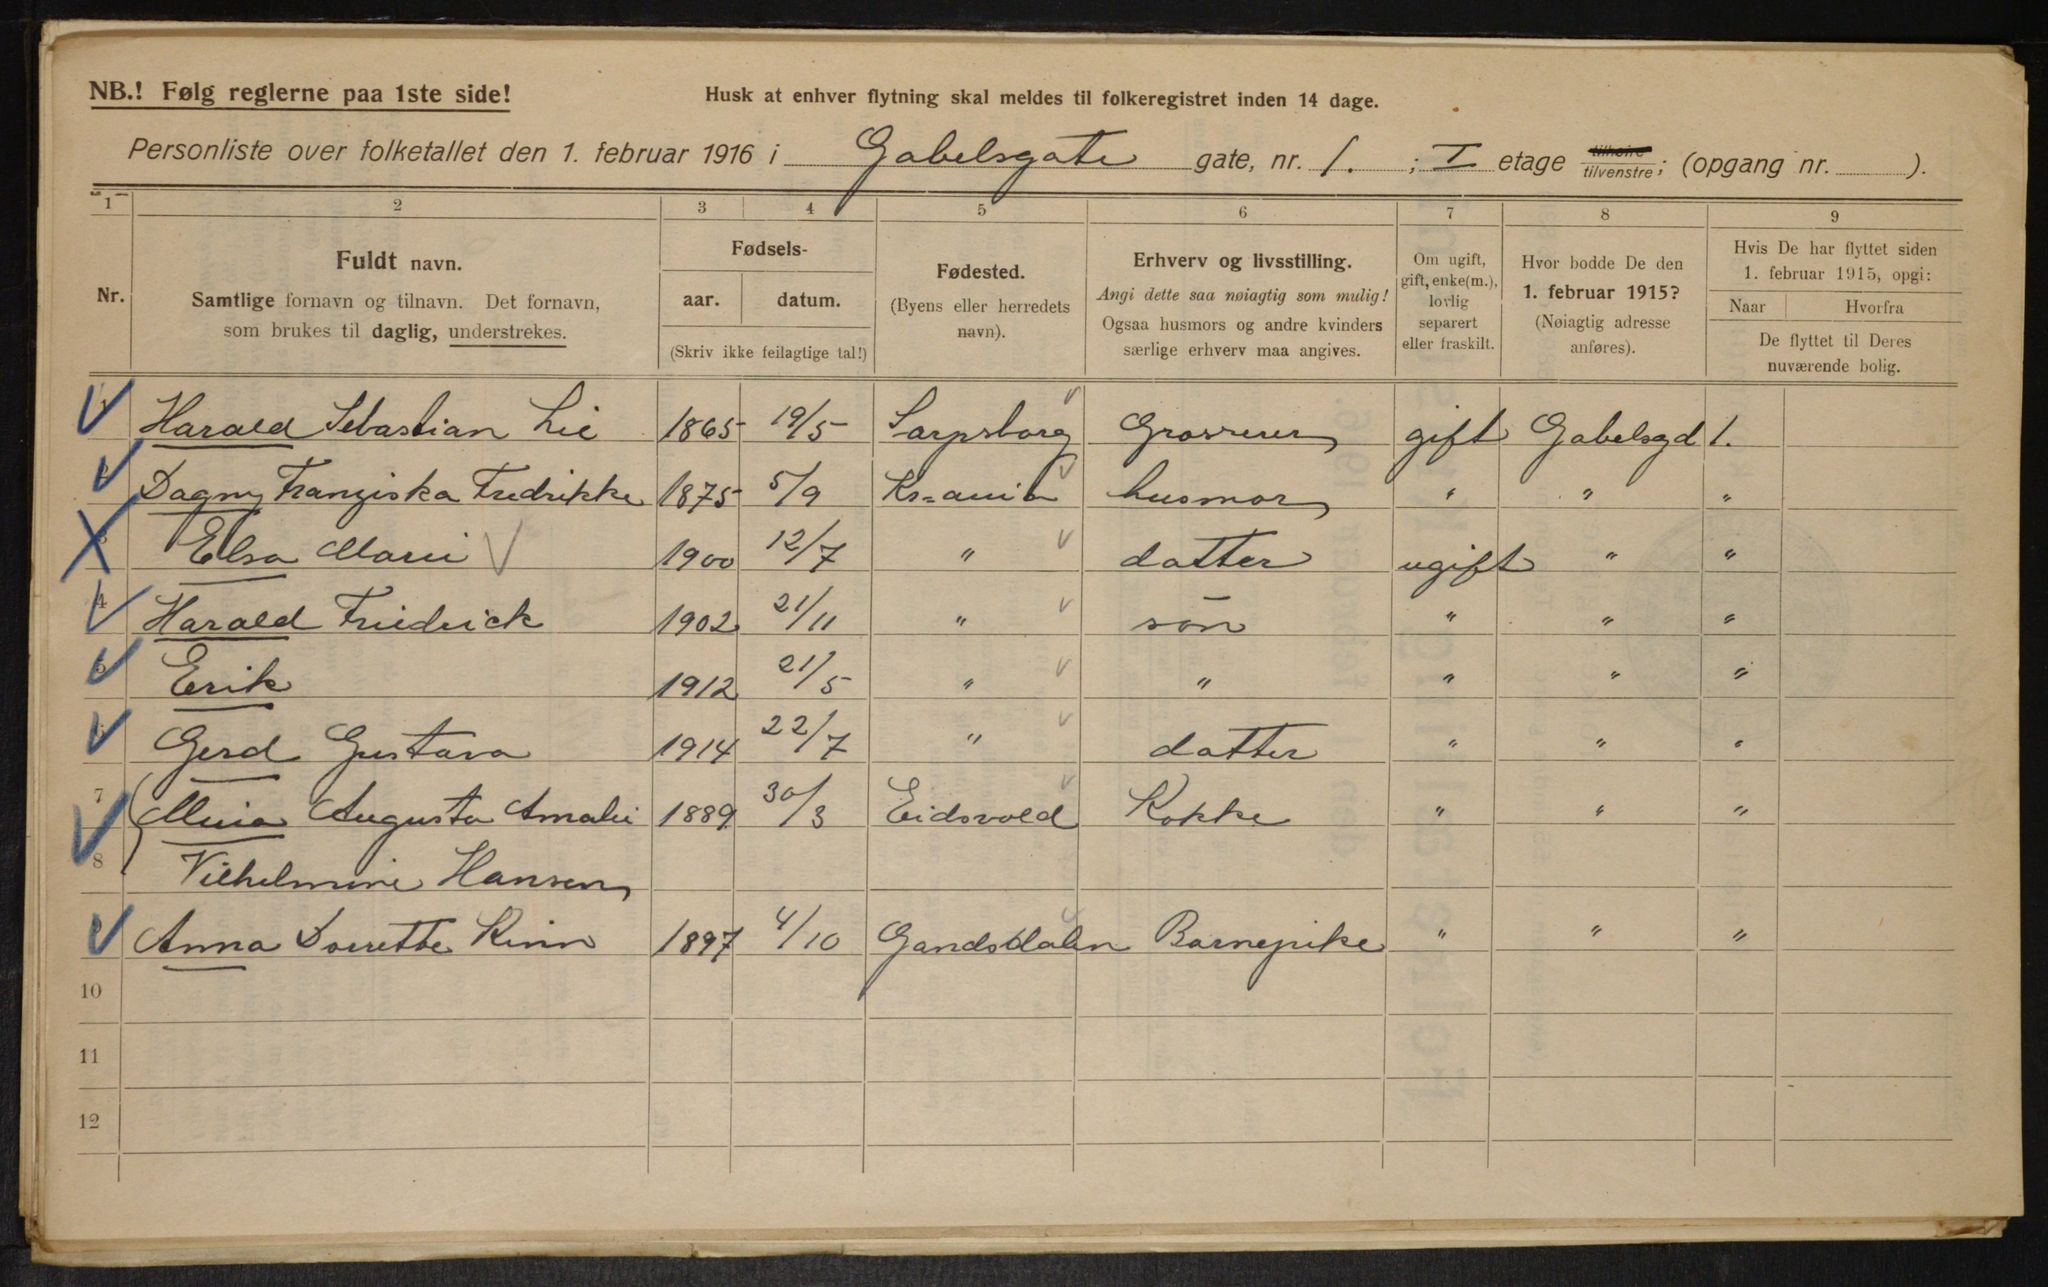 NB.! Følg reglerne paa 1ste side!
Husk at enhver flytning skal meldes til folkeregistret inden 14 dage.
Personliste over folketallet den 1. februar 1916 i Gabelsgate gate, nr. 1. ; I etage tilhøire tilvenstre; (opgang nr. ).
1 2 3 4 5 6 7 8 9
Nr.
Fuldt navn.
Samtlige fornavn og tilnavn. Det fornavn,
som brukes til daglig, understrekes.
Fødsels-
aar. datum.
(Skriv ikke feilagtige tal!)
Fødested.
(Byens eller herredets
navn).
Erhverv og livsstilling.
Angi dette saa nøiagtig som mulig!
Ogsaa husmors og andre kvinders
særlige erhverv maa angives.
Om ugift,
gift, enke(m.),
lovlig
separert
eller fraskilt.
Hvor bodde De den
1. februar 1915?
(Nøiagtig adresse
anføres).
Hvis De har flyttet siden
1. februar 1915, opgi:
Naar Hvorfra
De flyttet til Deres
nuværende bolig.
Harald Sebastian Lie 1865 19/5 Sarpsborg Grosserer gift Gabelsgd 1.
Dagny Franziska Fredrikke 1875 5/9 Kr=ania husmor " " "
3 Elsa Marie 1900 12/7 " datter ugift " "
4 Harald Friedrick 1902 21/11 " søn " " "
5 Erik 1912 21/5 " " " " "
6 Gerd Gustava 1914 22/7 " datter " " "
7 Augusta Amalie 1889 30/3 Eidsvold Kokke " " "
8 Vilhelmine Hansen
Anna Dorrette Kinn 1897 4/10 Barnepike " " "
10
11
12